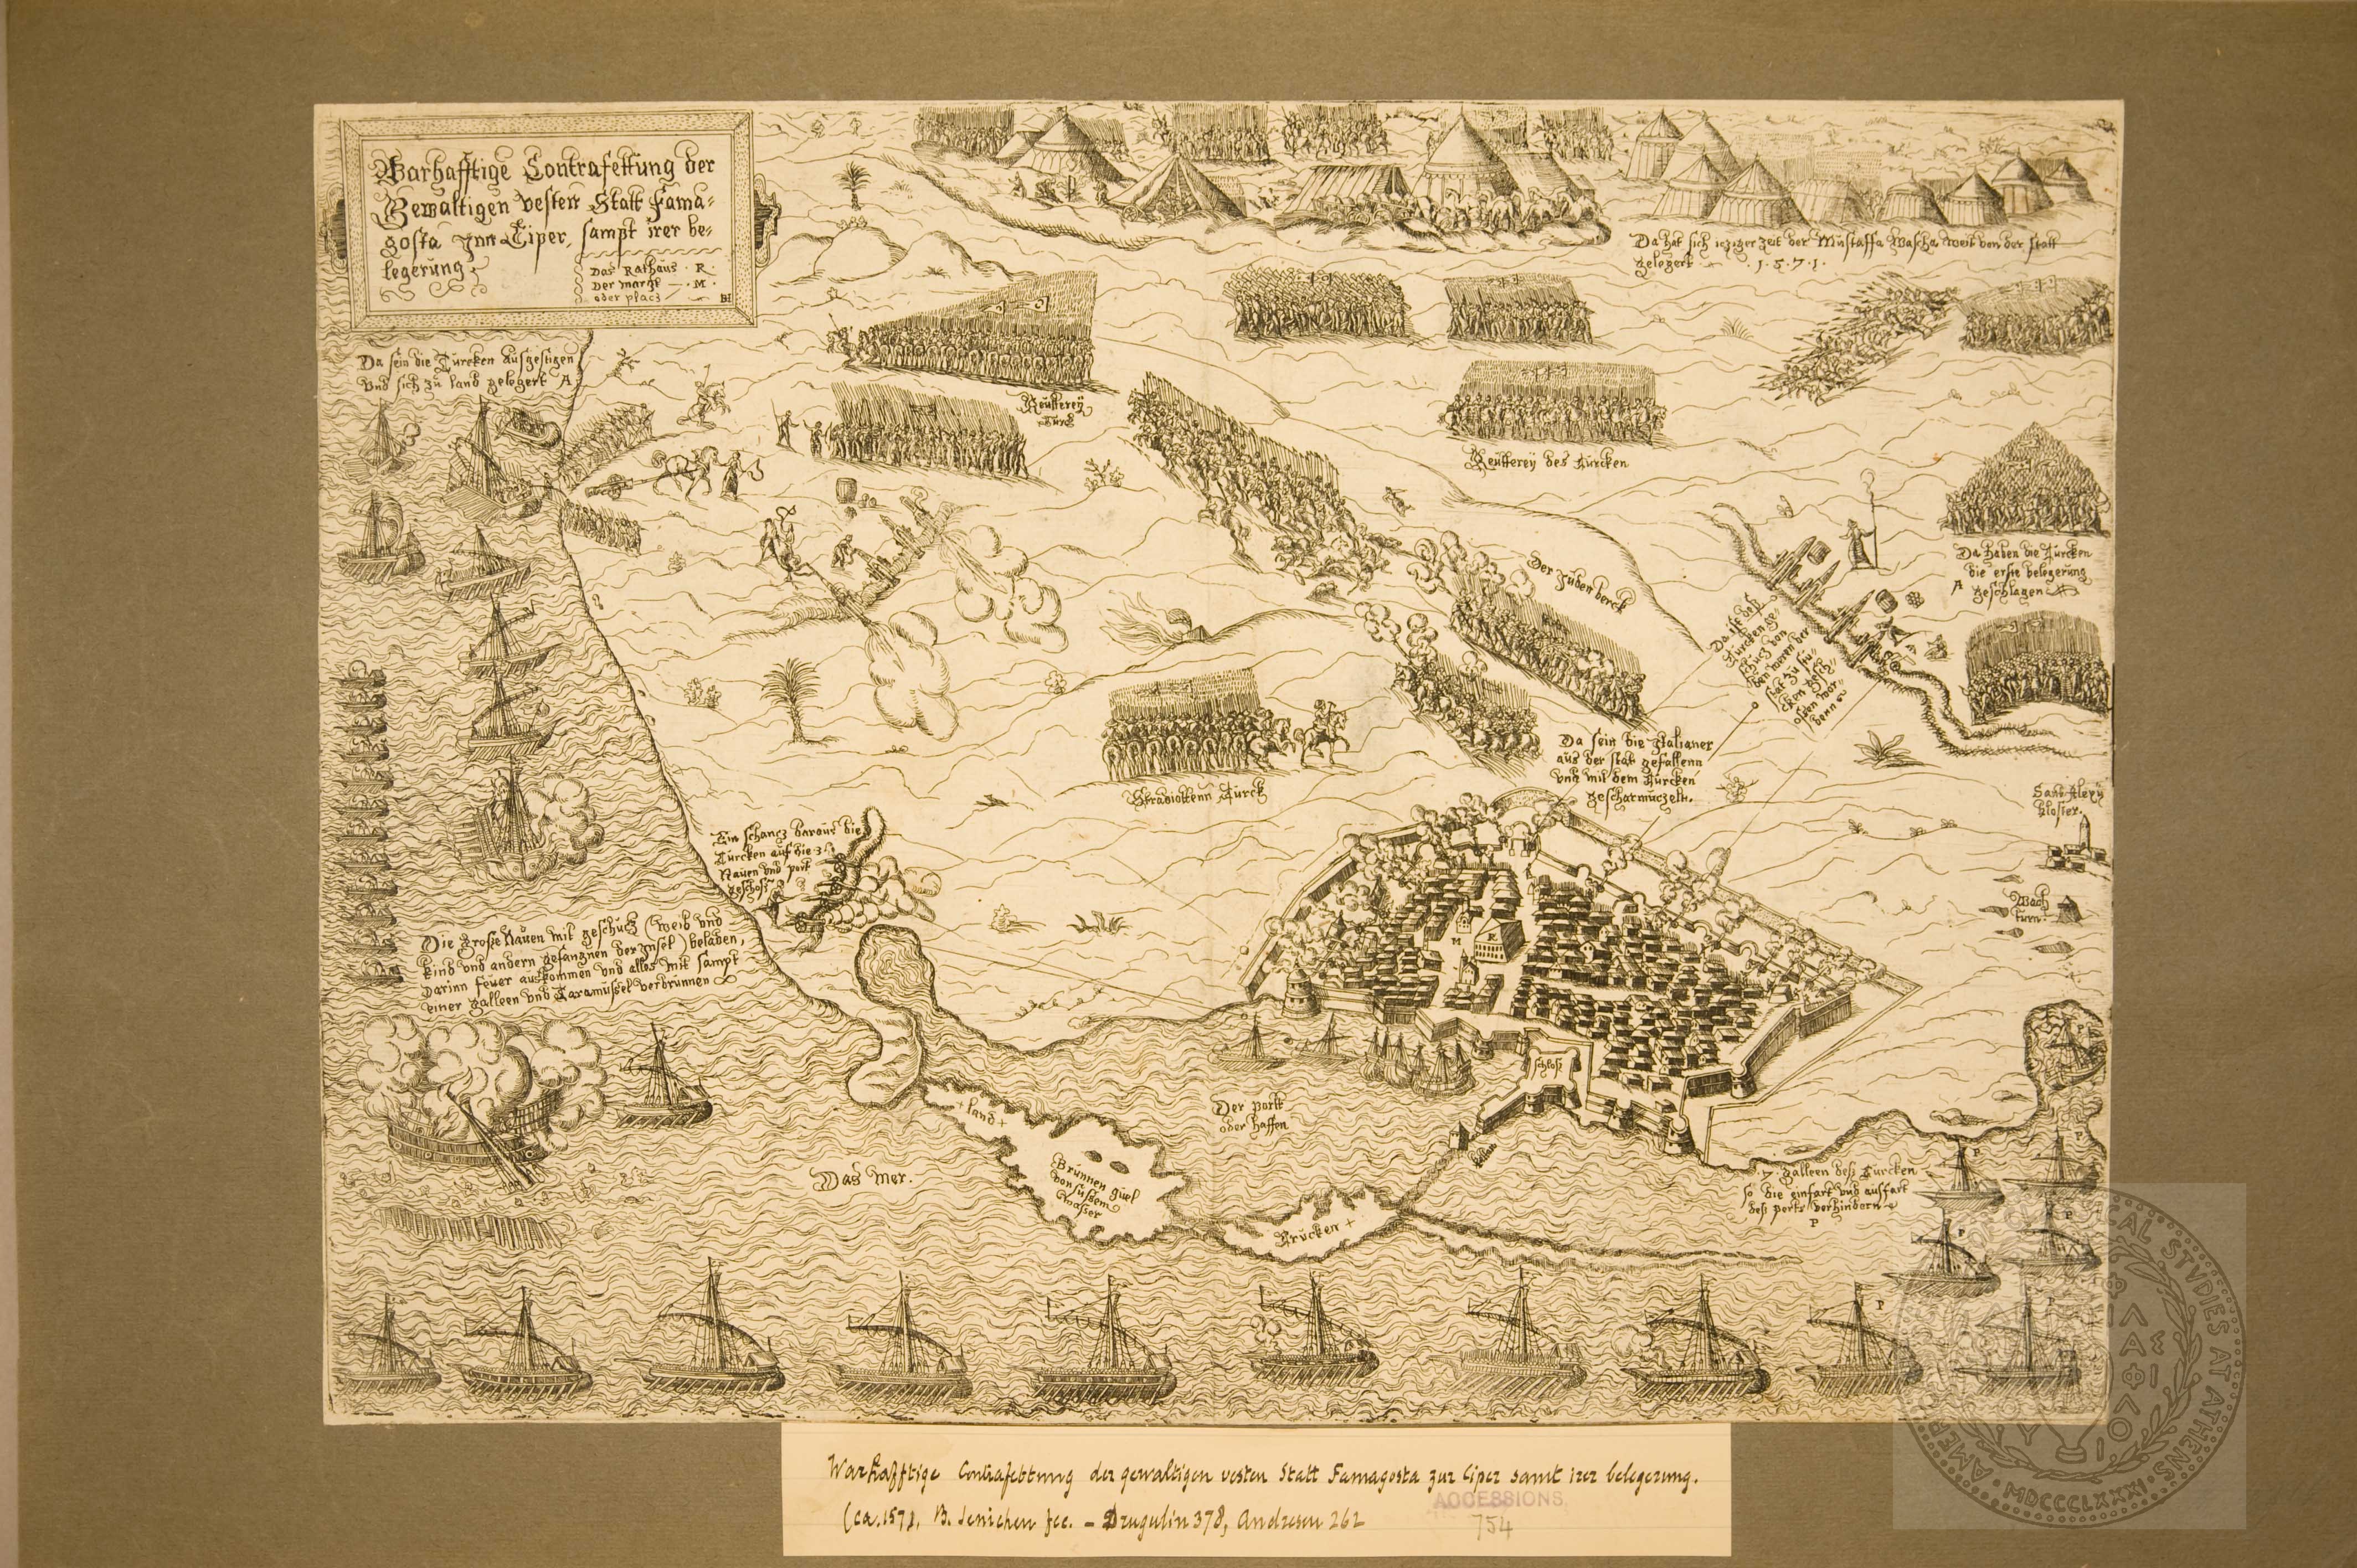 Warhafftige Contrafettung der
Gewaltigen vesten Statt Fama-
gosta Inn Ciper, sampt irer be-
legerung
Das Rathaus . R .
Der marckt . M .
oder placz
BI
Da hat sich ieziger zeit der Mustaffa Wascha weit von der statt
gelegert . 1 . 5 . 7 . 1 .
Da sein die Türcken ausgestigen
Vnd sich zu land gelegert A
Reutterey
Türck
Reutterey des Türcken
Da haben die Türcken
die erste belegerung
A geschlagen
Der Juden berck
Da ist deß
Türcken ge-
schücz von
der
Da sein die Italianer
aus der stat gefallenn
vnd mit dem Türcken
gescharmüczelt.
Stradiottenn Türck
Sand Alexy
kloster.
Wach
turn
Ein schancz daraus die
Türcken auf die
Nauen vnd port
geschoß
Die große Nauen mit geschücz (weib vnd
kind vnd andern gefangnen der Insel) beladen,
Darinn feuer auskommen vnd alles mit sampt
einer galleen vnd Caramussel verbrunnen
M
R
schloß
Der portt
oder haffen
+ land +
Brunnen quel
von süssem
wasser
Brücken +
Das Mer.
. 7 . galleen deß Türcken
so die einfart vnd ausfart
deß ports verhindern
P
P
P
P
P
P
P
P
Warhafftige Contrafettung der gewaltigen vesten Statt Famagosta zur Ciper samt irer belegerung.
(ca. 1571. B. Jenichen fec. – Drugulin 378, Andresen 262
ACCESSIONS
754
AMERICAN SCHOOL OF CLASSICAL STVDIES AT ATHENS
MDCCCLXXXI